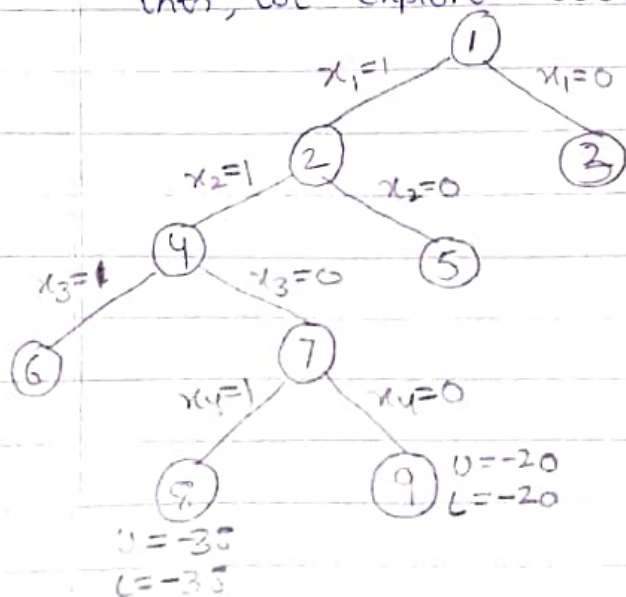 explore
1
x₁=1
x₁=0
2
3
x₂=1
x₂=0
4
5
x₃=1
x₃=0
6
7
x₄=1
x₄=0
8
9
U=-20
L=-20
U=-38
L=-38